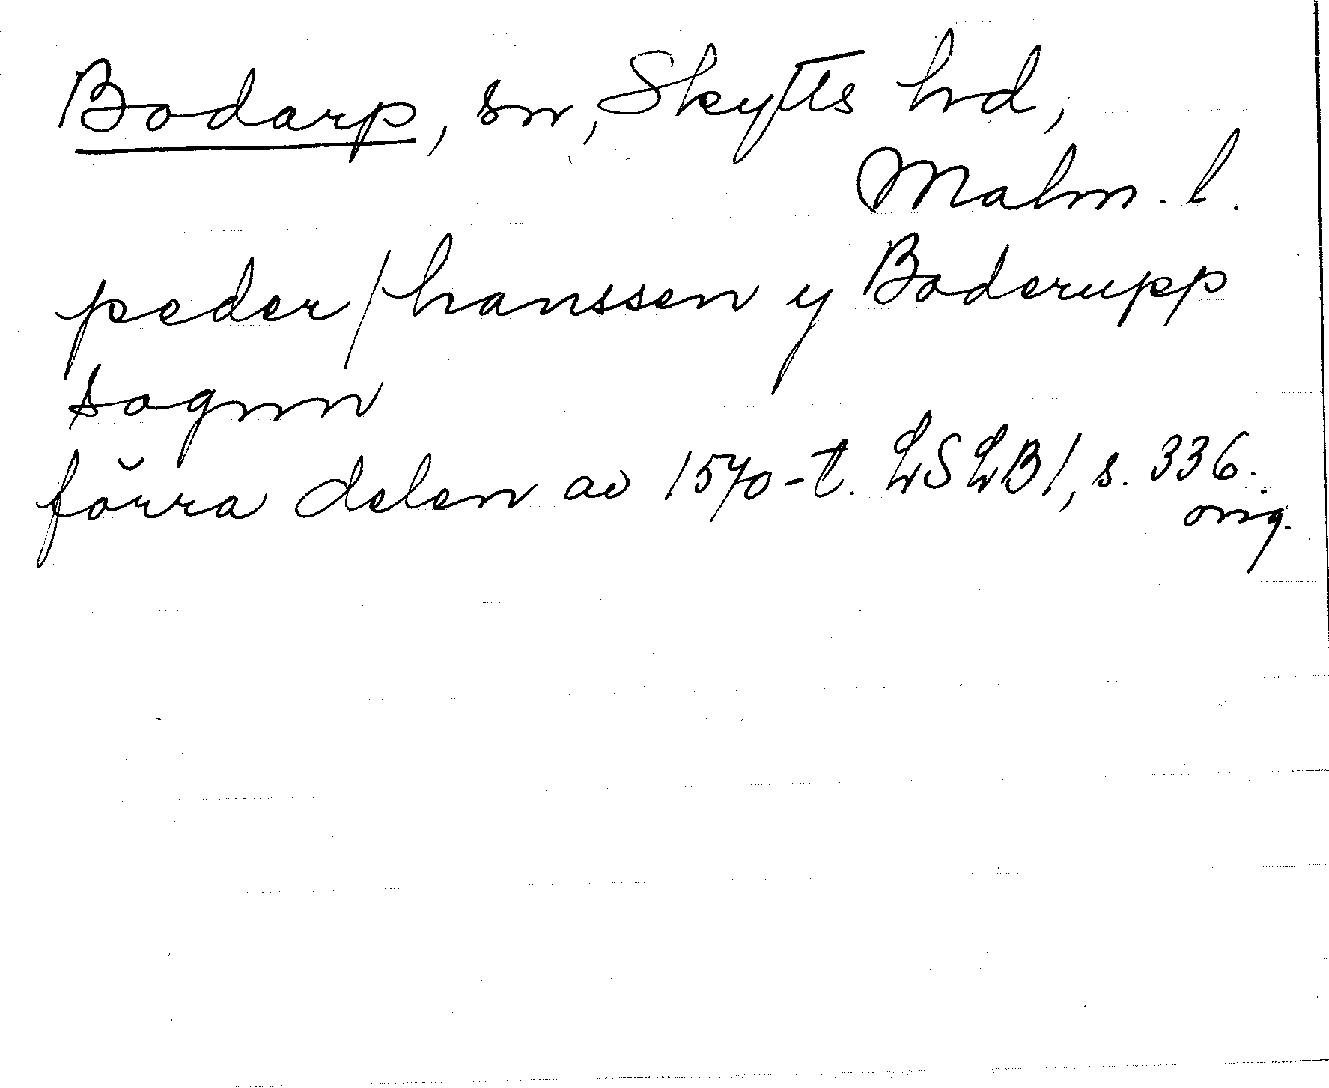 Bodarp, sn, Skytts hd,
Malm. l.
peder / hanssen y Boderupp
sognn
förra delen av 1570-t. LSLB1, s. 336.
orig.